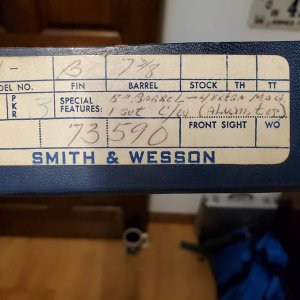 41- B 7 3/8
MODEL NO. FIN BARREL STOCK TH TT
PKR 3 SPECIAL FEATURES: 5" BARREL - 4 extra Mags
1 set C/W (Alum, top)
73590 FRONT SIGHT WO
SMITH & WESSON